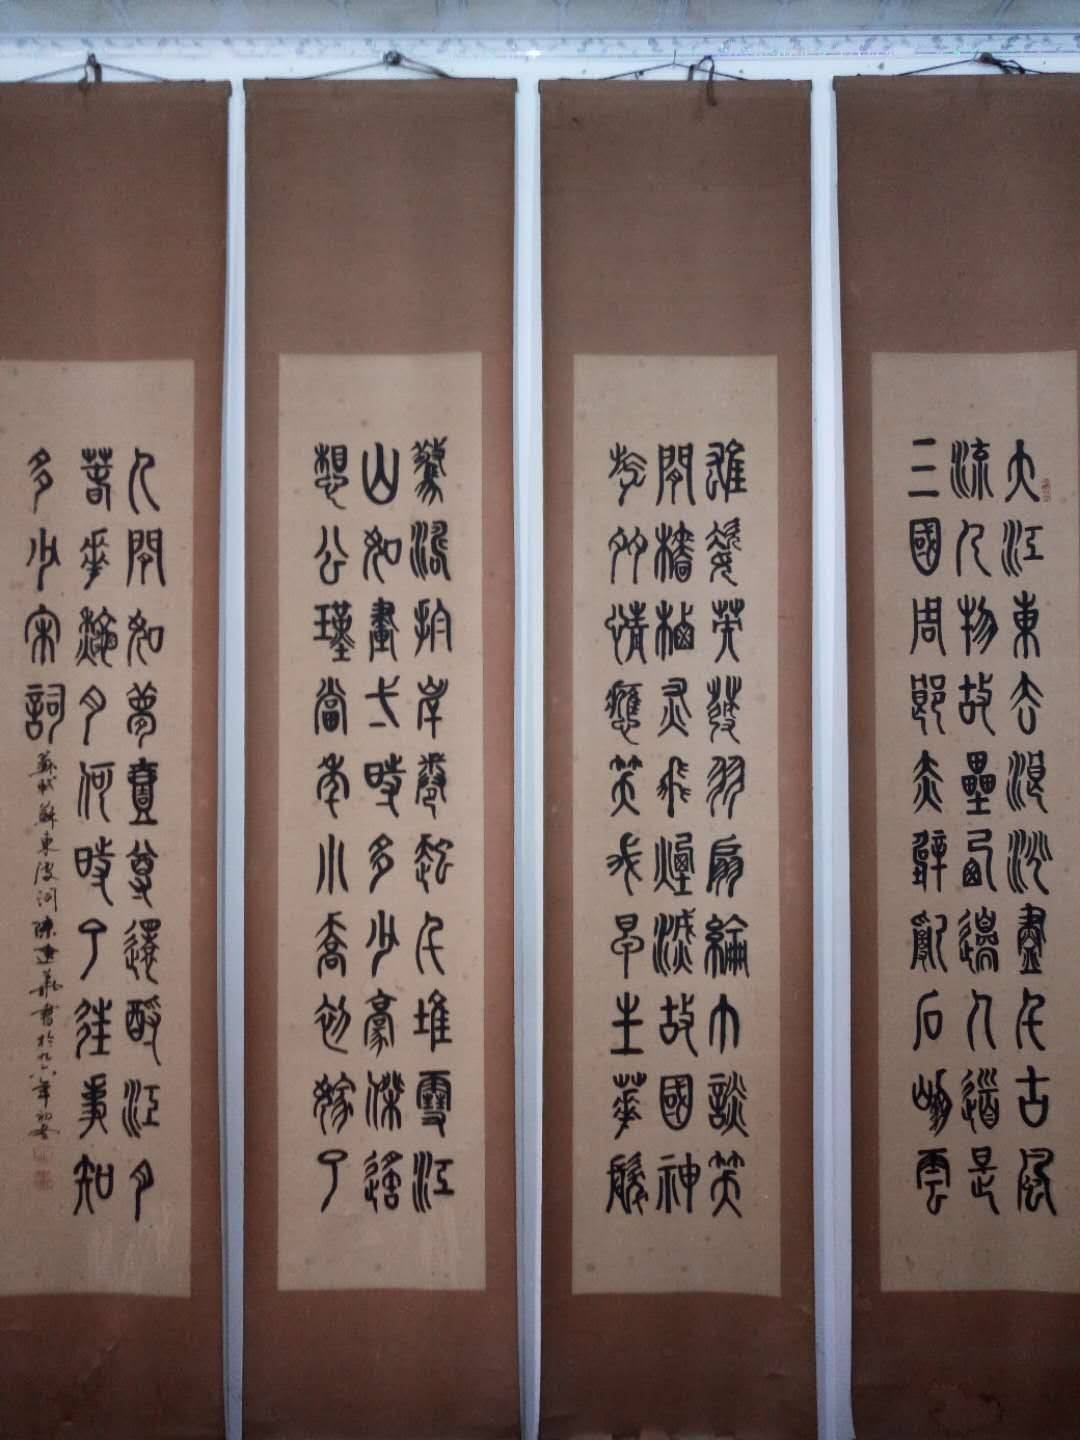 大江東去浪沙盡千古風
流人物故壘西邊人道是
三國周郎赤壁亂石崩雲
雄姿英發羽扇綸巾談笑
間檣櫓灰飛煙滅故國神
游多情應笑我早生華髮
驚濤拍岸卷起千堆雪江
山如畫一時多少豪傑遙
想公瑾當年小喬初嫁了
人間如夢壹尊還酹江月
春花秋月何時了往事知
多少宋詞 蘇東坡詞陳建華書於九八年初冬